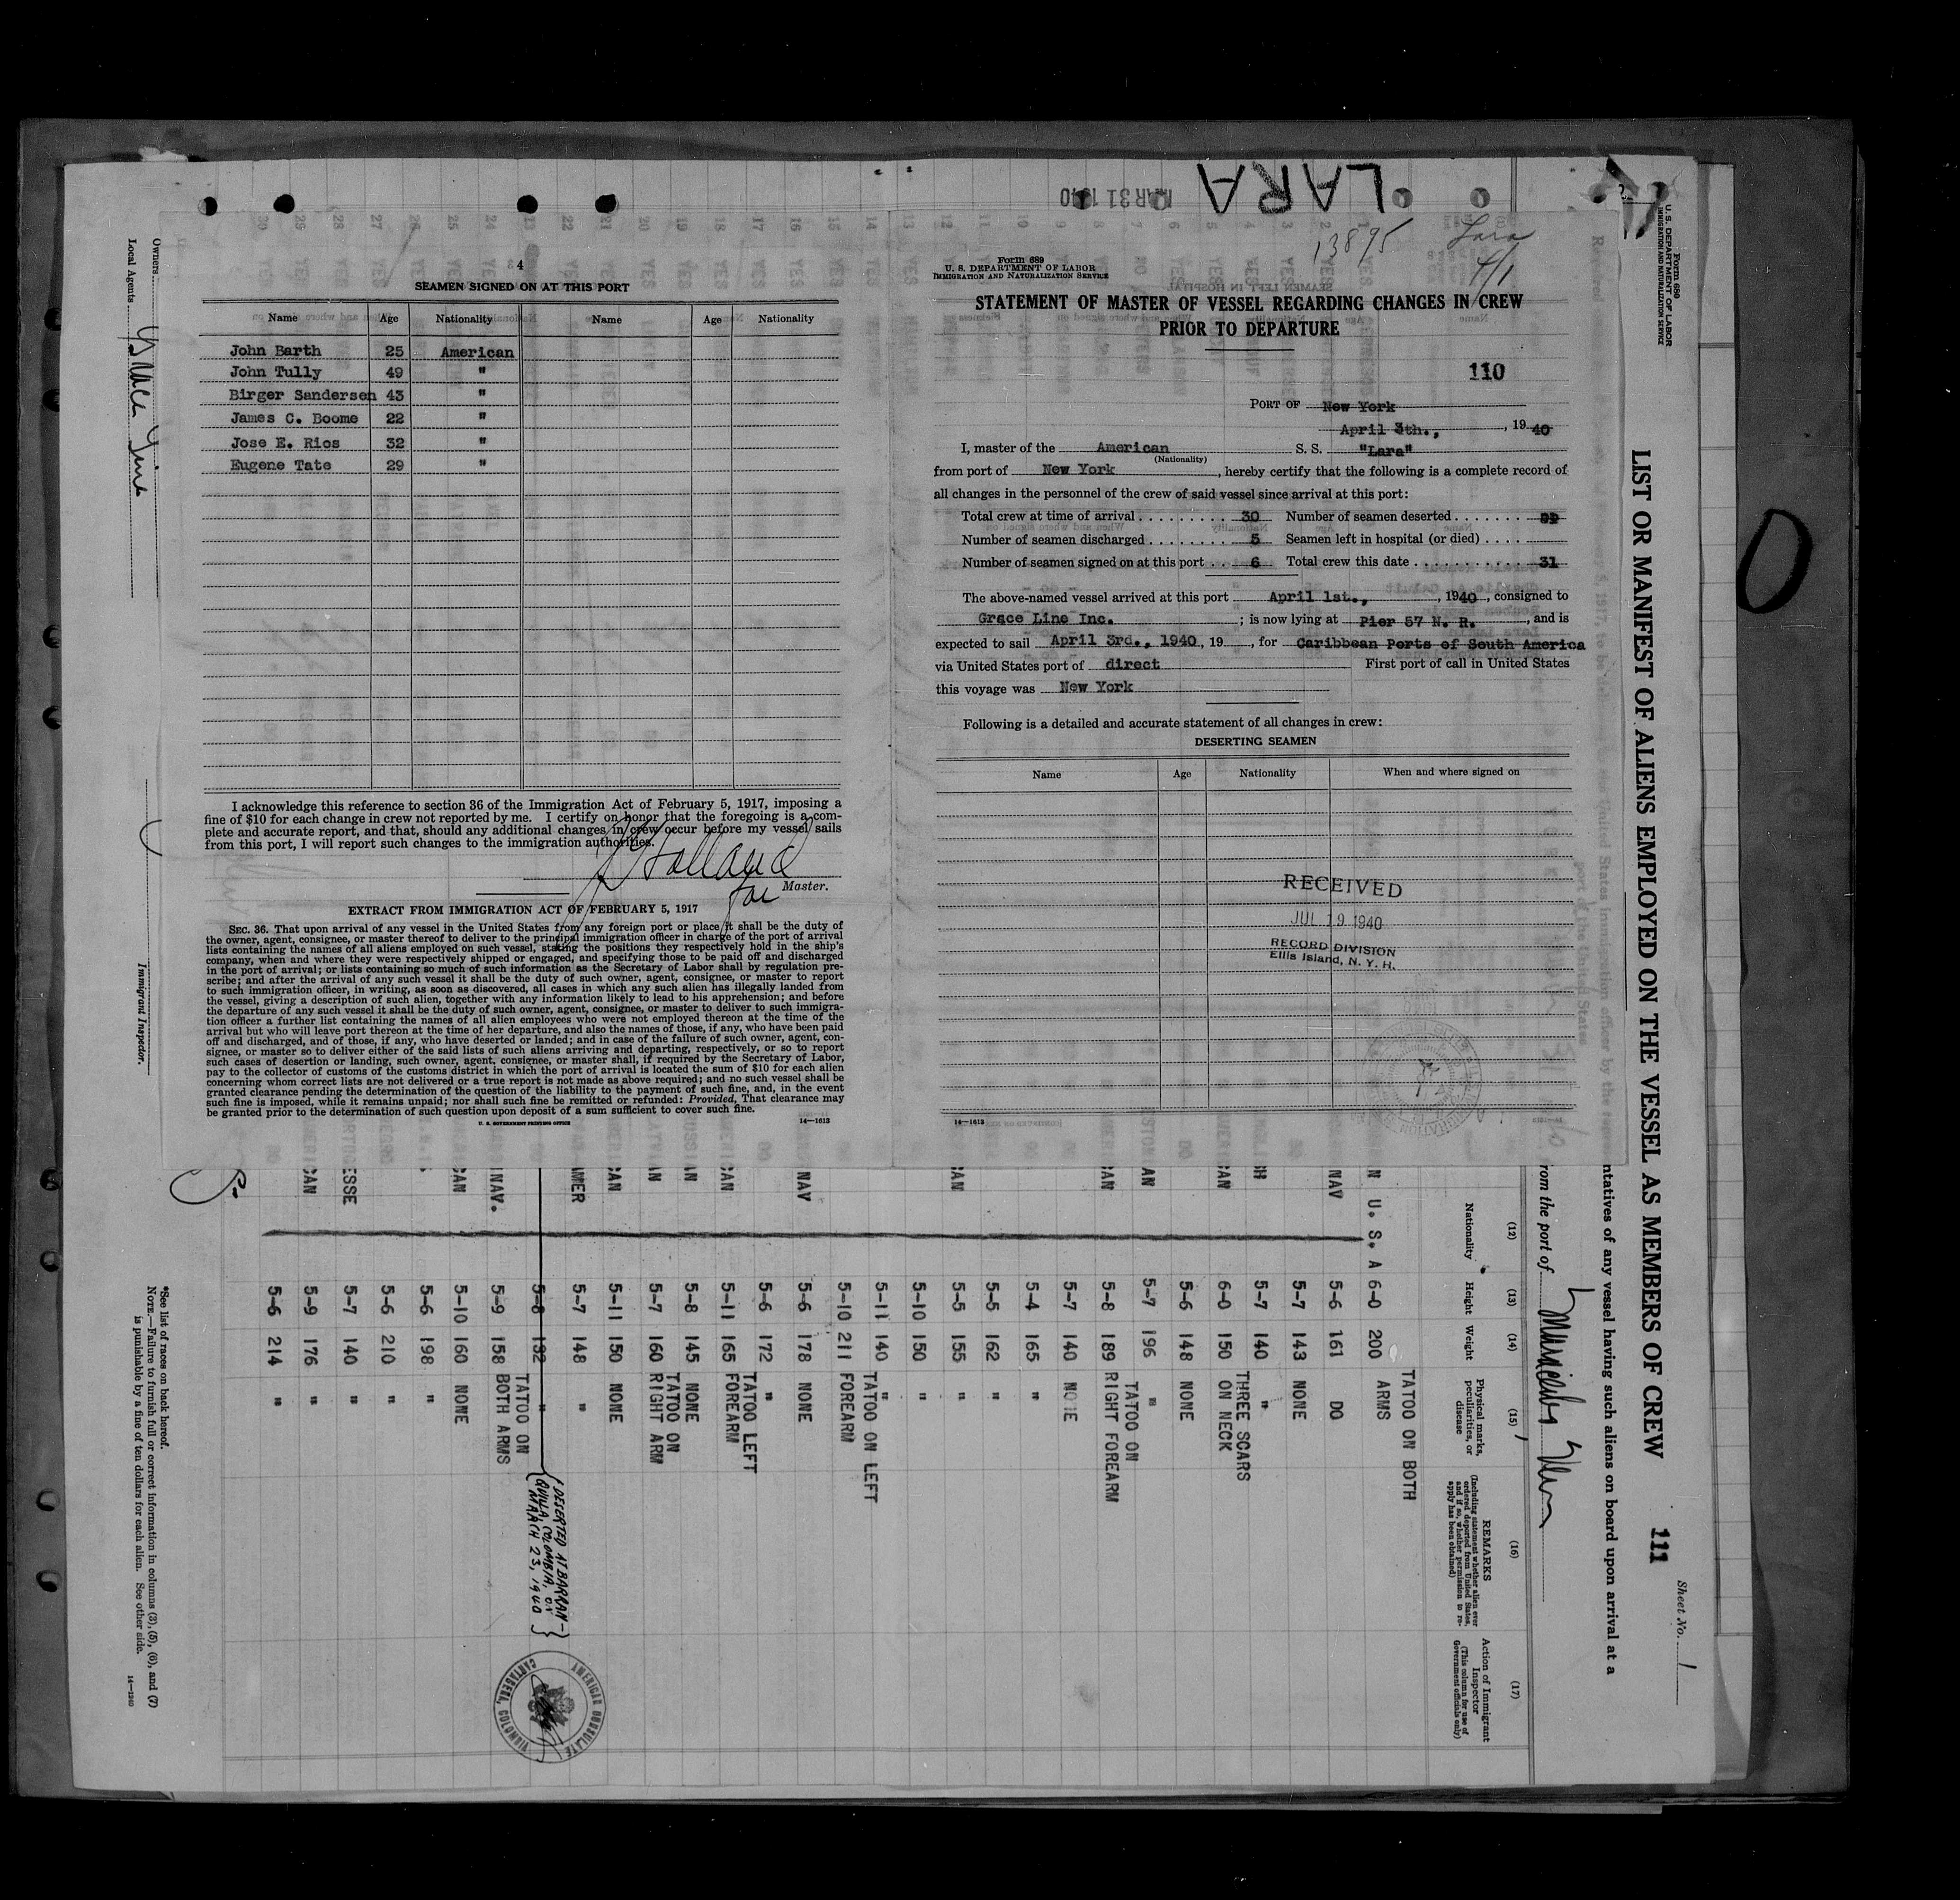 LARA
MAR 31 1940
4
SEAMEN SIGNED ON AT THIS PORT
Name Age Nationality Name Age Nationality
John Barth 25 American
John Tully 49 "
Birger Sandersen 43 "
James C. Boome 22 "
Jose E. Rios 32 "
Eugene Tate 29 "
I acknowledge this reference to section 36 of the Immigration Act of February 5, 1917, imposing a
fine of $10 for each change in crew not reported by me. I certify on honor that the foregoing is a com-
plete and accurate report, and that, should any additional changes in crew occur before my vessel sails
from this port, I will report such changes to the immigration authorities.
Holland
for Master.
EXTRACT FROM IMMIGRATION ACT OF FEBRUARY 5, 1917
SEC. 36. That upon arrival of any vessel in the United States from any foreign port or place it shall be the duty of
the owner, agent, consignee, or master thereof to deliver to the principal immigration officer in charge of the port of arrival
lists containing the names of all aliens employed on such vessel, stating the positions they respectively hold in the ship's
company, when and where they were respectively shipped or engaged, and specifying those to be paid off and discharged
in the port of arrival; or lists containing so much of such information as the Secretary of Labor shall by regulation pre-
scribe; and after the arrival of any such vessel it shall be the duty of such owner, agent, consignee, or master to report
to such immigration officer, in writing, as soon as discovered, all cases in which any such alien has illegally landed from
the vessel, giving a description of such alien, together with any information likely to lead to his apprehension; and before
the departure of any such vessel it shall be the duty of such owner, agent, consignee, or master to deliver to such immigra-
tion officer a further list containing the names of all alien employees who were not employed thereon at the time of the
arrival but who will leave port thereon at the time of her departure, and also the names of those, if any, who have been paid
off and discharged, and of those, if any, who have deserted or landed; and in case of the failure of such owner, agent, con-
signee, or master so to deliver either of the said lists of such aliens arriving and departing, respectively, or so to report
such cases of desertion or landing, such owner, agent, consignee, or master shall, if required by the Secretary of Labor,
pay to the collector of customs of the customs district in which the port of arrival is located the sum of $10 for each alien
concerning whom correct lists are not delivered or a true report is not made as above required; and no such vessel shall be
granted clearance pending the determination of the question of the liability to the payment of such fine, and, in the event
such fine is imposed, while it remains unpaid; nor shall such fine be remitted or refunded: Provided, That clearance may
be granted prior to the determination of such question upon deposit of a sum sufficient to cover such fine.
U. S. GOVERNMENT PRINTING OFFICE 14—1613
13895
Lara
4/1
Form 689
U. S. DEPARTMENT OF LABOR
IMMIGRATION AND NATURALIZATION SERVICE
STATEMENT OF MASTER OF VESSEL REGARDING CHANGES IN CREW
PRIOR TO DEPARTURE
110
PORT OF New York
April 3th., , 19 40
I, master of the American S. S. "Lara"
(Nationality)
from port of New York, hereby certify that the following is a complete record of
all changes in the personnel of the crew of said vessel since arrival at this port:
Total crew at time of arrival 30 Number of seamen deserted
Number of seamen discharged 5 Seamen left in hospital (or died)
Number of seamen signed on at this port 6 Total crew this date 31
The above-named vessel arrived at this port April 1st., , 1940, consigned to
Grace Line Inc. ; is now lying at Pier 57 N. R. , and is
expected to sail April 3rd., 1940, 19 , for Caribbean Ports of South America
via United States port of direct First port of call in United States
this voyage was New York
Following is a detailed and accurate statement of all changes in crew:
DESERTING SEAMEN
Name Age Nationality When and where signed on
RECEIVED
JUL 19 1940
RECORD DIVISION
Ellis Island, N. Y. H.
14—1613
Form 680
U. S. DEPARTMENT OF LABOR
IMMIGRATION AND NATURALIZATION SERVICE
LIST OR MANIFEST OF ALIENS EMPLOYED ON THE VESSEL AS MEMBERS OF CREW
111
Sheet No. 1
ntatives of any vessel having such aliens on board upon arrival at a
rom the port of
(12) (13) (14) (15) (16) (17)
Nationality Height Weight Physical marks, peculiarities, or disease
REMARKS
(Including statement whether alien ever ordered deported from United States, and if so, whether permission to re-apply has been obtained)
Action of Immigrant Inspector
(This column for use of Government officials only)
N U. S. A 6-0 200 TATOO ON BOTH ARMS
NAV 5-6 161 DO
5-7 143 NONE
H 5-7 140 "
CAN 6-0 150 THREE SCARS ON NECK
5-6 148 NONE
AN 5-7 196 "
CAN 5-8 189 TATOO ON RIGHT FOREARM
5-7 140 NONE
5-4 165 "
5-5 162 "
CAN 5-5 155 "
5-10 150 "
5-11 140 "
5-10 211 TATOO ON LEFT FOREARM
NAV 5-6 178 NONE
5-6 172 "
CAN 5-11 165 TATOO LEFT FOREARM
N 5-8 145 NONE
N 5-7 160 TATOO ON RIGHT ARM
CAN 5-11 150 NONE
AMER 5-7 148 "
5-8 132 " (DESERTED AT BARRAN-
QUILLA, COLOMBIA, ON
MARCH 23, 1940)
NAV. 5-9 158 TATOO ON BOTH ARMS
CAN 5-10 160 NONE
5-6 198 "
5-6 210 "
ESSE 5-7 140 "
CAN 5-9 176 "
5-6 214 "
AMERICAN CONSULATE
CARTAGENA, COLOMBIA
Owners
Local Agents Grace Line
Immigrant Inspector.
*See list of races on back hereof.
NOTE.—Failure to furnish full or correct information in columns (3), (5), (6), and (7)
is punishable by a fine of ten dollars for each alien. See other side.
14—1240